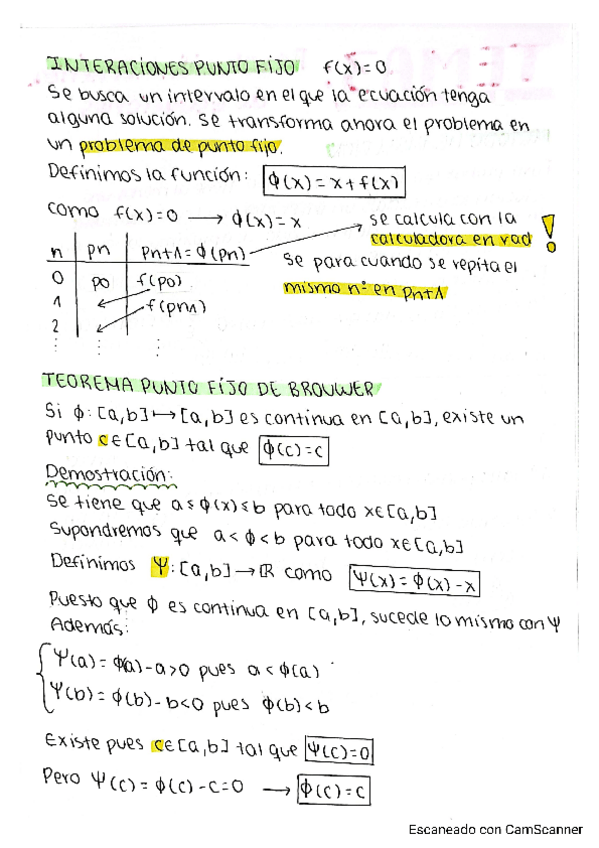 INTERACIONES PUNTO FIJO f(x)=0
Se busca un intervalo en el que la ecuación tenga
alguna solución. Se transforma ahora el problema en
un problema de punto fijo.
Definimos la función: ϕ(x) = x + f(x)
como f(x)=0 → ϕ(x)=x
se calcula con la
calculadora en rad !
n pn pn+1=ϕ(pn)
se para cuando se repita el
mismo nº en pn+1
0 po f(po)
1 f(pn1)
2
⋮ ⋮ ⋮
TEOREMA PUNTO FIJO DE BROUWER
Si ϕ: [a,b] ↦ [a,b] es continua en [a,b], existe un
punto c∈[a,b] tal que ϕ(c)=c
Demostración:
Se tiene que a≤ϕ(x)≤b para todo x∈[a,b]
Supondremos que a<ϕ<b para todo x∈[a,b]
Definimos Ψ:[a,b]→ℝ como Ψ(x)=ϕ(x)-x
Puesto que ϕ es continua en [a,b], sucede lo mismo con Ψ
Además:
Ψ(a)=ϕ(a)-a>0 pues a<ϕ(a)
Ψ(b)=ϕ(b)-b<0 pues ϕ(b)<b
Existe pues c∈[a,b] tal que Ψ(c)=0
Pero Ψ(c)=ϕ(c)-c=0 → ϕ(c)=c
Escaneado con CamScanner